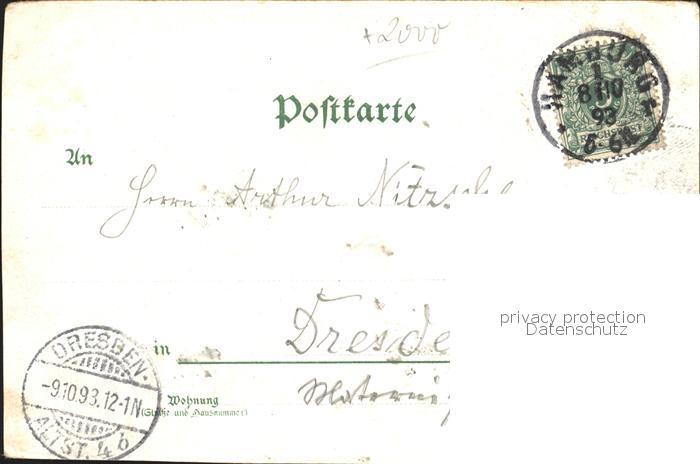 +2000
HAMBURG
1
8 10
93
5-6N
REICHSPOST
5
Postkarte
An
Herrn Arthur
privacy protection
Datenschutz
in
Wohnung
(Straße und Hausnummer)
DRESDEN-
-9.10.93.12-1N
ALTST. 4 b